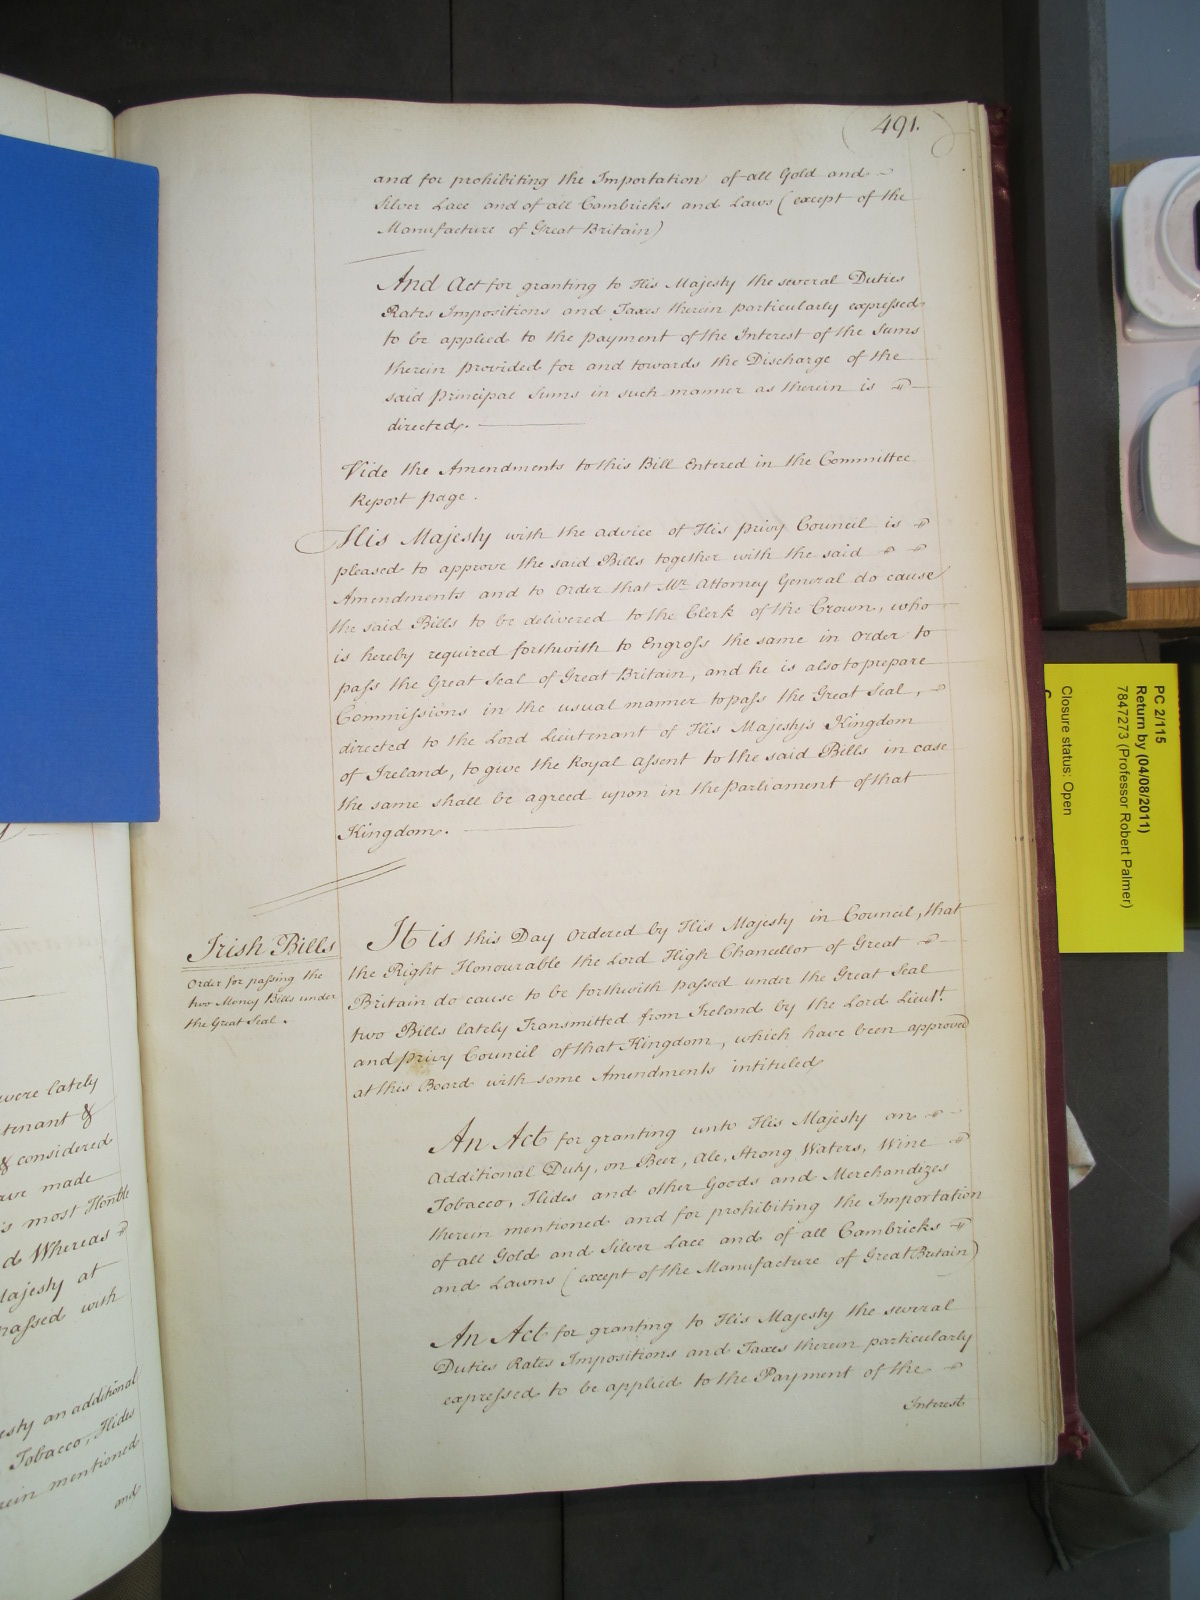 491.
and for prohibiting the Importation of all Gold and
Silver Lace and of all Cambricks and Laws (except of the
Manufacture of Great Britain)
And Act for granting to His Majesty the several Duties
Rates Impositions and Taxes therein particularly expressed
to be applied to the payment of the Interest of the Sums
therein provided for and towards the Discharge of the
said principal Sums in such manner as therein is
directed.
Vide the Amendments to this Bill Entered in the Committee
Report page.
His Majesty with the advice of His privy Council is
pleased to approve the said Bills together with the said
Amendments and to Order that Mr. Attorney General do cause
the said Bills to be delivered to the Clerk of the Crown, who
is hereby required forthwith to Engross the same in order to
pass the Great Seal of Great Britain, and he is also to prepare
Commissions in the usual manner to pass the Great Seal,
directed to the Lord Lieutenant of His Majesty's Kingdom
of Ireland, to give the Royal assent to the said Bills in case
the same shall be agreed upon in the parliament of that
Kingdom.
Irish Bills
Order for passing the
two Money Bills under
the Great Seal.
It is this Day Ordered by His Majesty in Council, that
the Right Honourable the Lord High Chancellor of Great
Britain do cause to be forthwith passed under the Great Seal
two Bills lately Transmitted from Ireland by the Lord Lieut.
and privy Council of that Kingdom, which have been approved
at this Board with some Amendments intituled
An Act for granting unto His Majesty an
Additional Duty, on Beer, Ale, Strong Waters, Wine
Tobacco, Hides and other Goods and Merchandizes
therein mentioned and for prohibiting the Importation
of all Gold and Silver Lace and of all Cambricks
and Lawns (except of the Manufacture of Great Britain)
An Act for granting to His Majesty the several
Duties Rates Impositions and Taxes therein particularly
expressed to be applied to the Payment of the
Interest
were lately
tenant &
& considered
ave made
is most Honble
d Whereas
Majesty at
passed with
esty an additional
Tobacco, Hides
rein mentioned
and
PC 2/115
Return by (04/08/2011)
7847273 (Professor Robert Palmer)
Closure status: Open